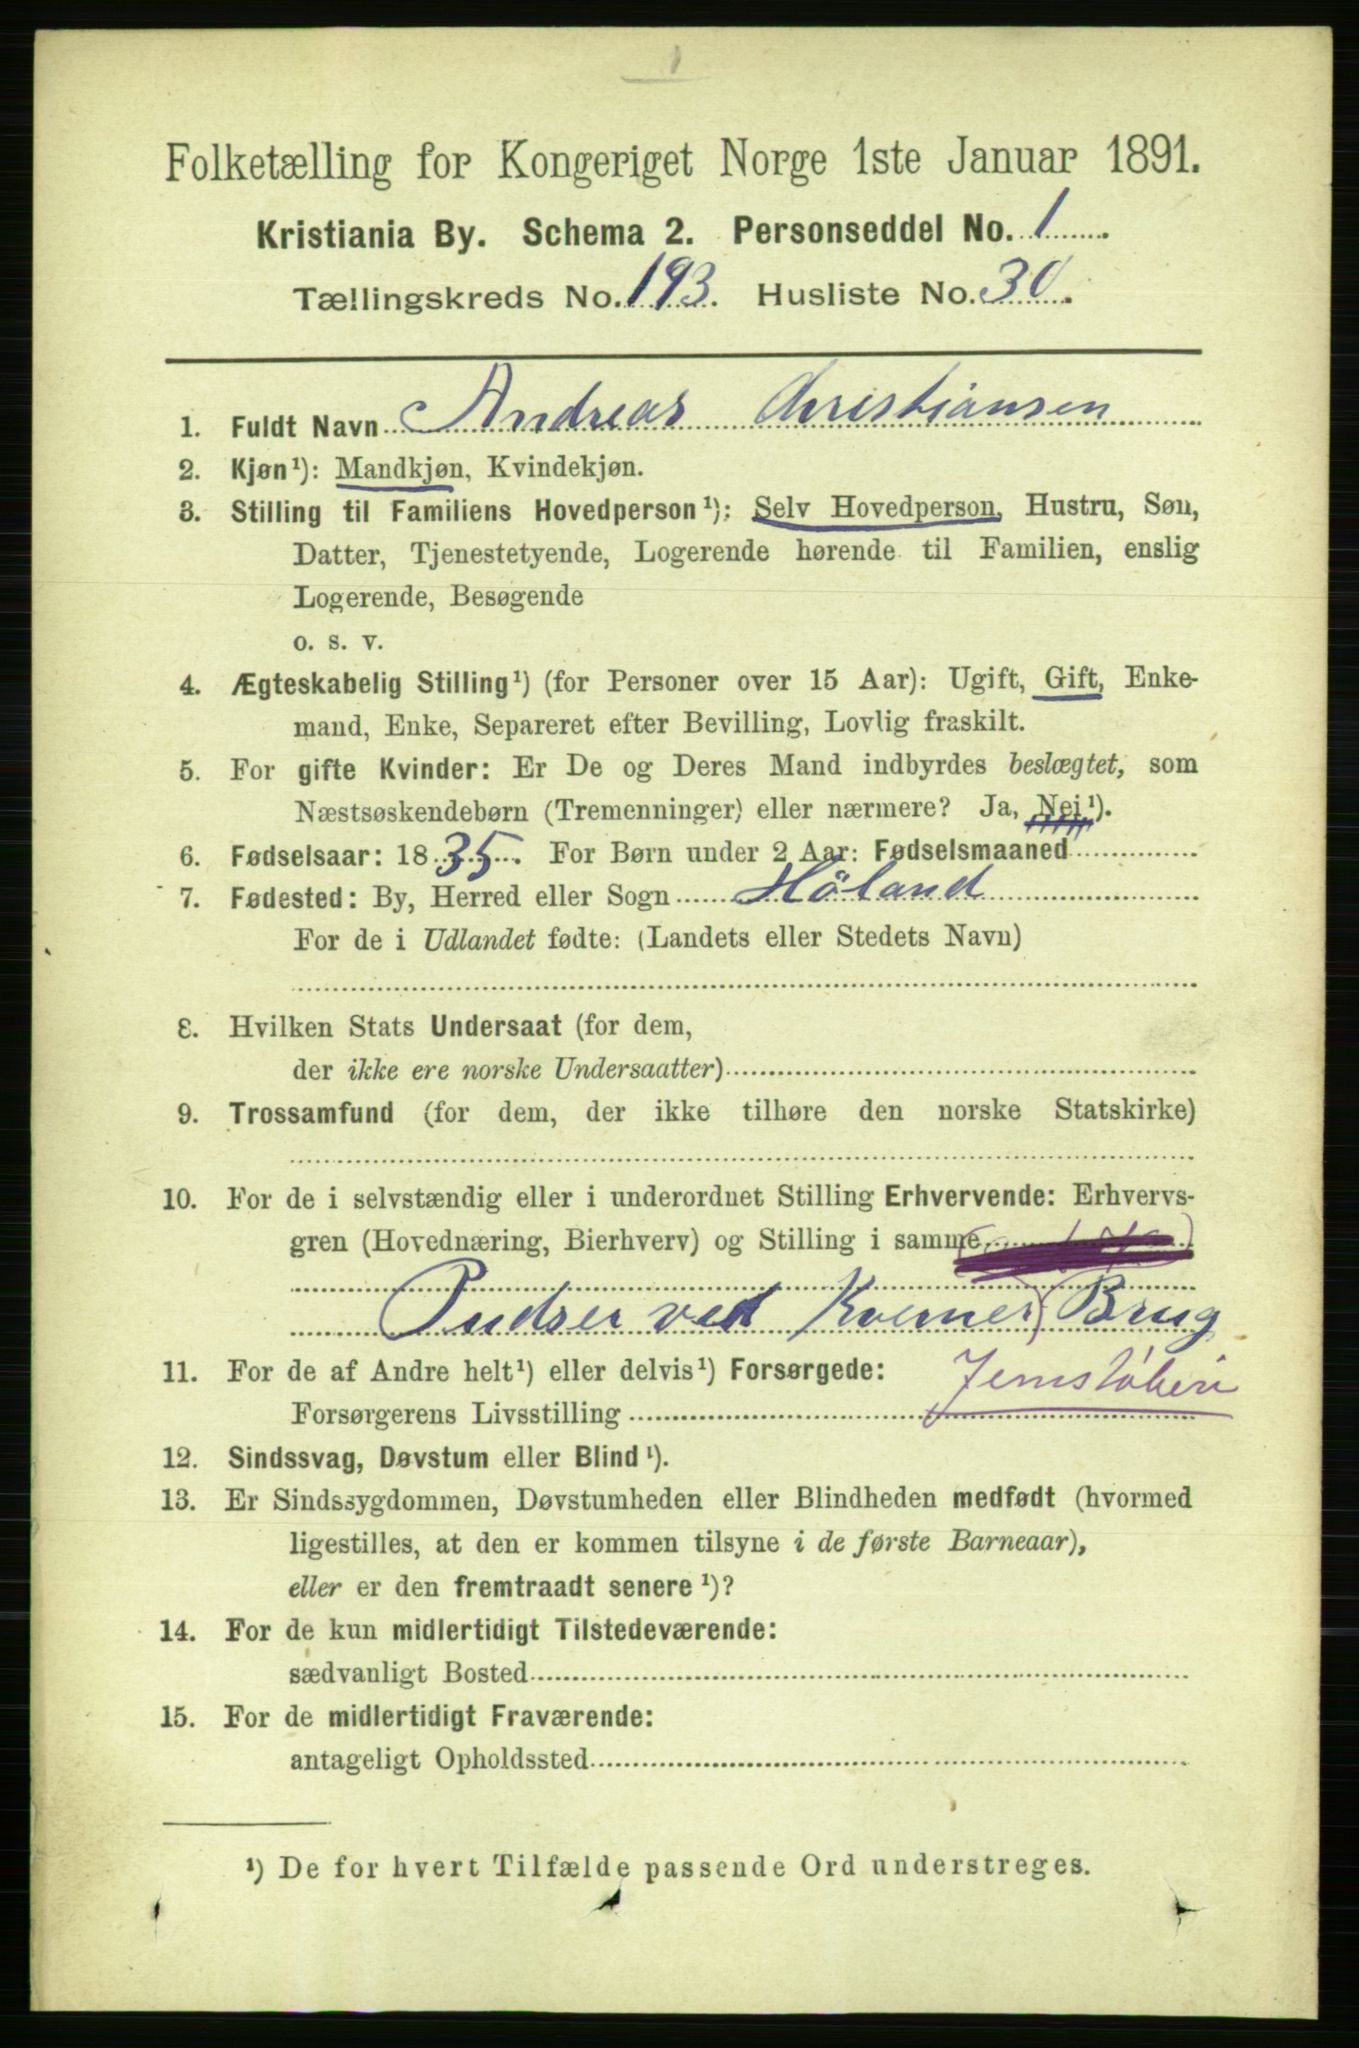 1
Folketælling for Kongeriget Norge 1ste Januar 1891.
Kristiania By. Schema 2. Personseddel No. 1
Tællingskreds No. 193. Husliste No. 30.
1. Fuldt Navn Andreas Christiansen
2. Kjøn¹): Mandkjøn, Kvindekjøn.
3. Stilling til Familiens Hovedperson¹): Selv Hovedperson, Hustru, Søn,
Datter, Tjenestetyende, Logerende hørende til Familien, enslig
Logerende, Besøgende
o. s. v.
4. Ægteskabelig Stilling¹) (for Personer over 15 Aar): Ugift, Gift, Enke-
mand, Enke, Separeret efter Bevilling, Lovlig fraskilt.
5. For gifte Kvinder: Er De og Deres Mand indbyrdes beslægtet, som
Næstsøskendebørn (Tremenninger) eller nærmere? Ja, Nei¹).
6. Fødselsaar: 1835. For Børn under 2 Aar: Fødselsmaaned
7. Fødested: By, Herred eller Sogn Höland
For de i Udlandet fødte: (Landets eller Stedets Navn)
8. Hvilken Stats Undersaat (for dem,
der ikke ere norske Undersaatter)
9. Trossamfund (for dem, der ikke tilhøre den norske Statskirke)
10. For de i selvstændig eller i underordnet Stilling Erhvervende: Erhvervs-
gren (Hovednæring, Bierhverv) og Stilling i samme
Pudser ved Kverner Brug
11. For de af Andre helt¹) eller delvis¹) Forsørgede: Jernstöberi
Forsørgerens Livsstilling
12. Sindssvag, Døvstum eller Blind¹).
13. Er Sindssygdommen, Døvstumheden eller Blindheden medfødt (hvormed
ligestilles, at den er kommen tilsyne i de første Barneaar),
eller er den fremtraadt senere¹)?
14. For de kun midlertidigt Tilstedeværende:
sædvanligt Bosted
15. For de midlertidigt Fraværende:
antageligt Opholdssted
¹) De for hvert Tilfælde passende Ord understreges.